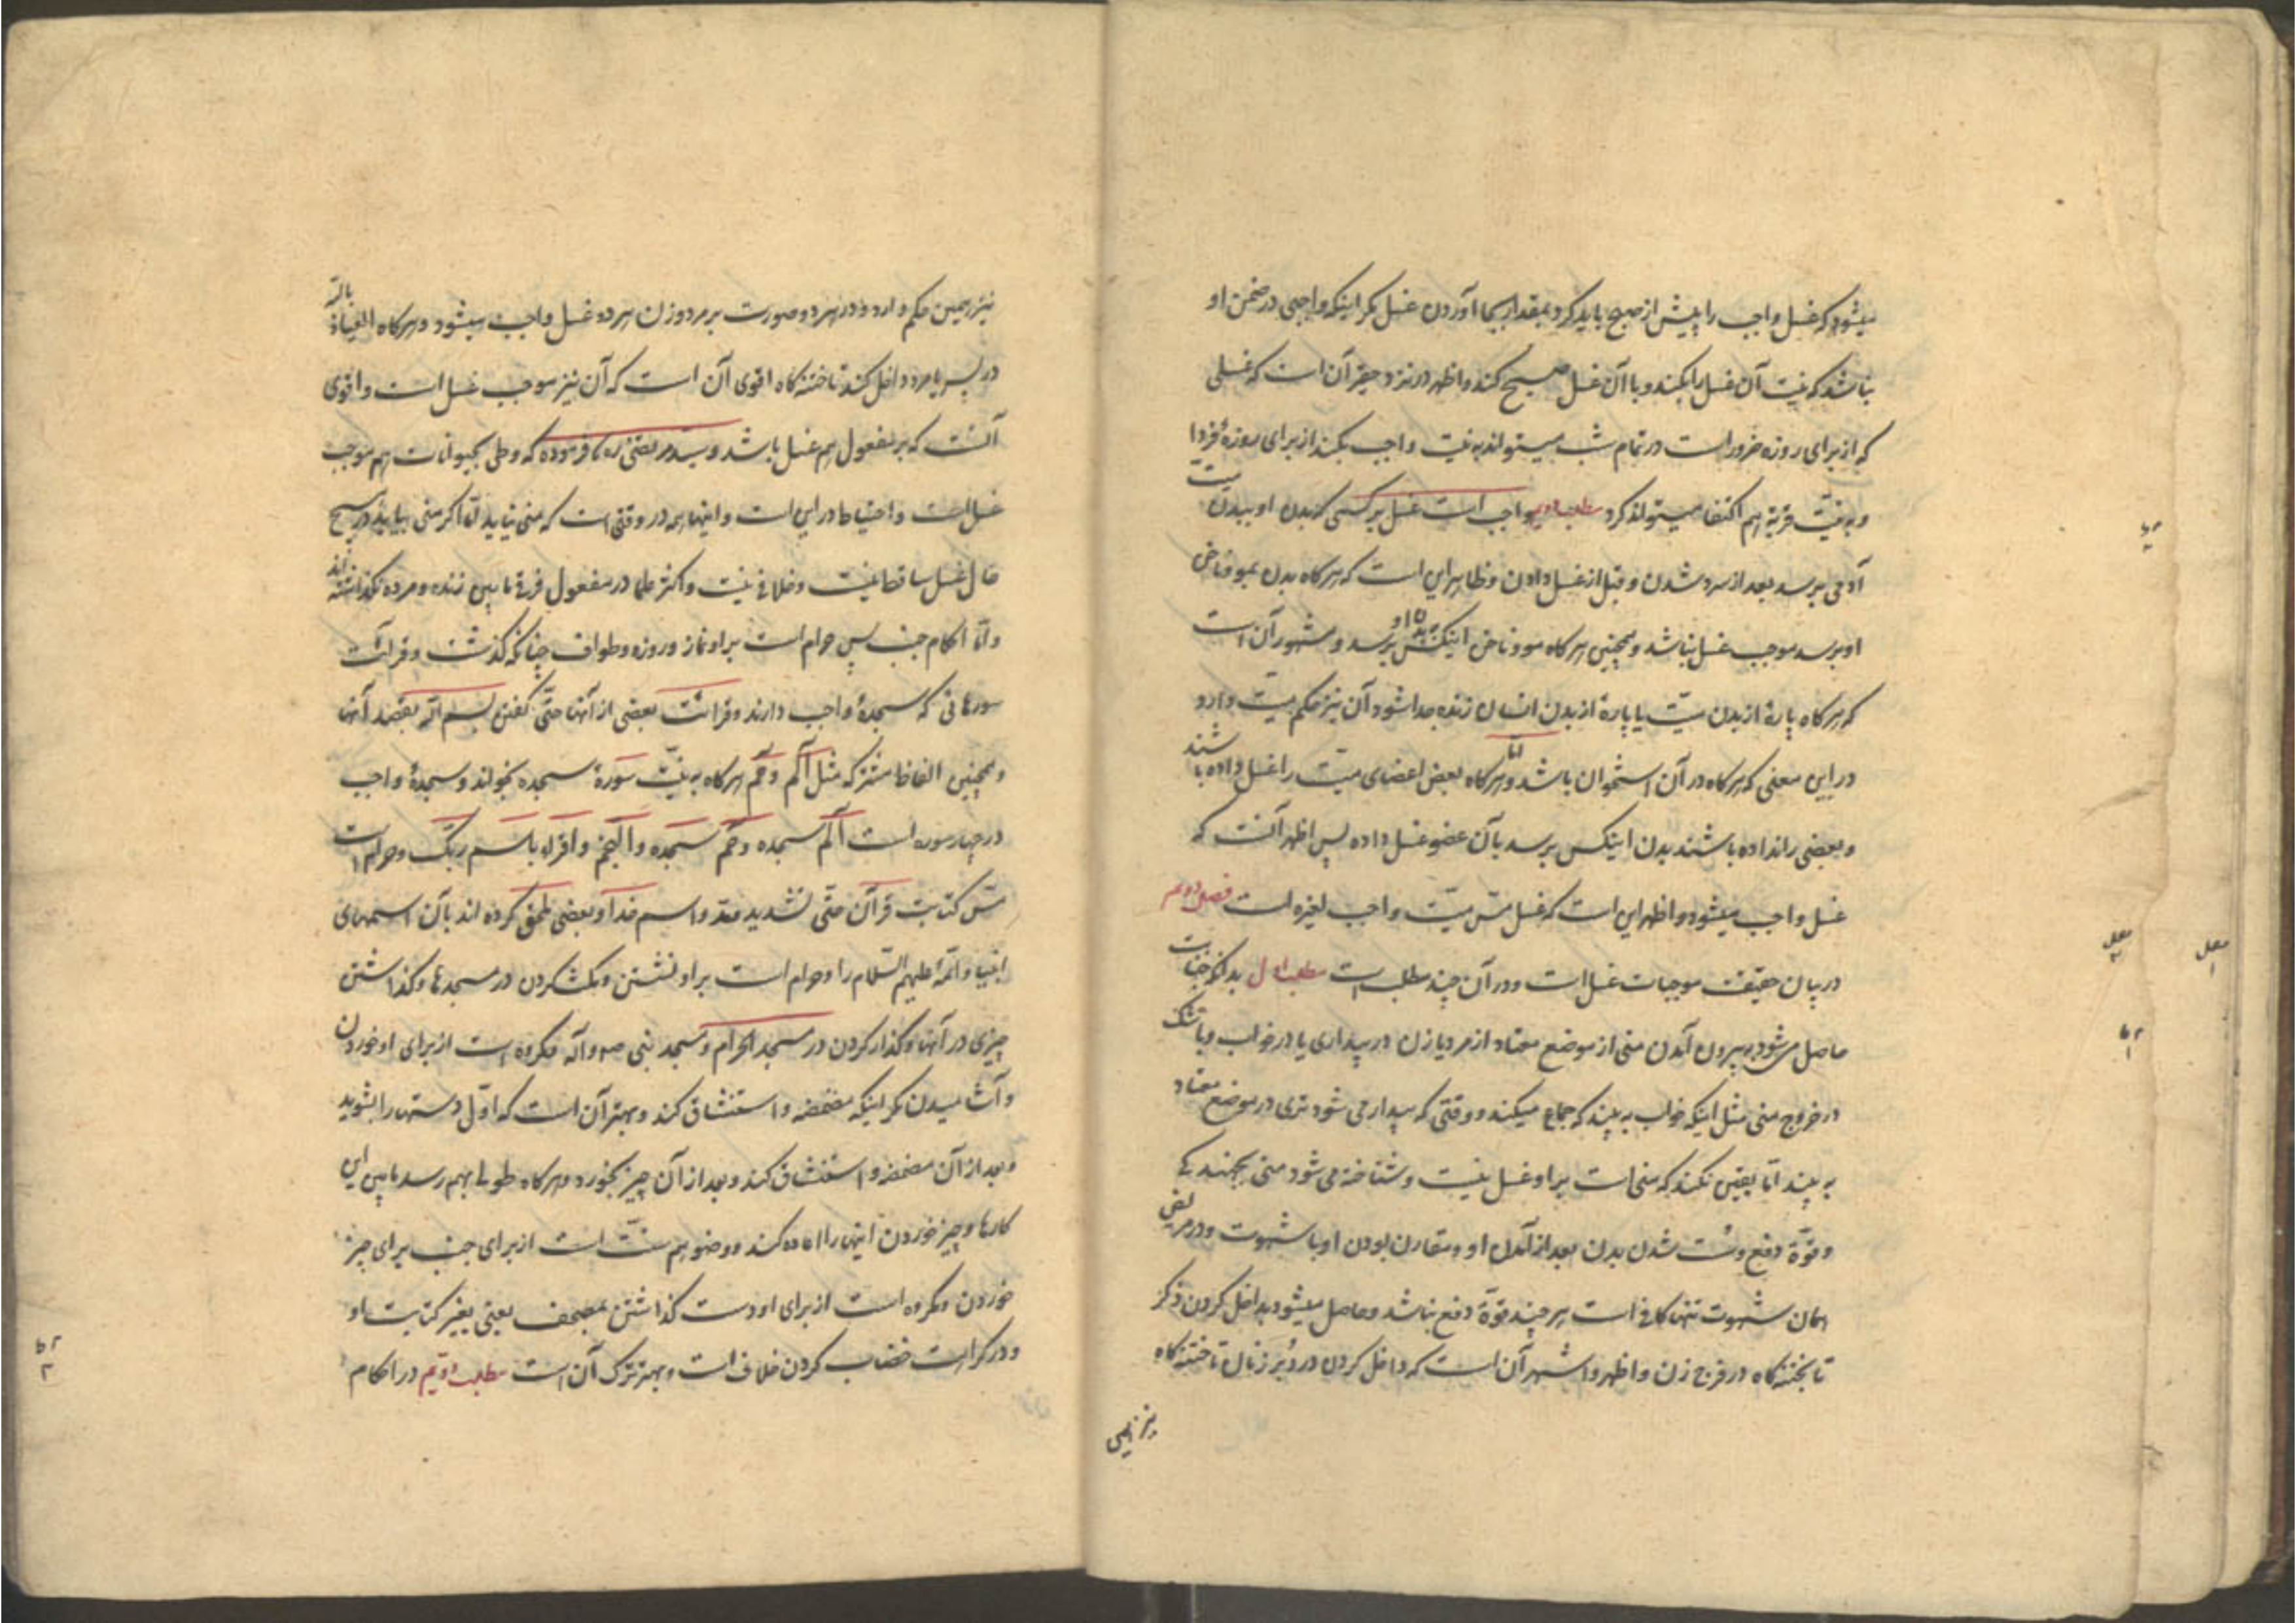 میشود که غسل واجب را پیش از صبح باید کرد بمقدار بجا آوردن غسل مکر اینکه واجبی در ضمن او
نباشد که نیت آن غسل را بکند و با آن غسل صبح کند و اظهر در نزد حقیر آن است که غسلی
که از برای روزه ضرور است در تمام شب میتواند به نیت واجب بکند از برای روزهٔ فردا
و به نیت قربة هم اکتفا میتواند کرد مطلب دویم واجب است غسل بر کسی که بدن او ببدن میت
آدمی برسد بعد از سرد شدن و قبل از غسل دادن و ظاهر این است که هر کاه بدن بمو و ناخن
او برسد موجب غسل نباشد و همچنین هر کاه مو و ناخن اینکس ببدن او برسد و مشهور آن است
که هر کاه پارهٔ از بدن میت یا پارهٔ از بدن انسان زنده جدا شود آن نیز حکم میت دارد
در این معنی که هر کاه در آن استخوان باشد و اما هر کاه بعض اعضای میت را غسل داده باشند
و بعضی را نداده باشند بدن اینکس برسد بآن عضو غسل داده پس اظهر آنست که
غسل واجب میشود و اظهر این است که غسل مس میت واجب لغیره است فصل دویم
در بیان حقیقت موجبات غسل است و در آن چند مطلب است مطلب اول بدانکه جنابت
حاصل میشود به بیرون آمدن منی از موضع معتاد از مرد یا زن در بیداری یا در خواب و با شک
در خروج منی مثل اینکه خواب به بیند که جماع میکند و وقتی که بیدار می شود تری در موضع معتاد
به بیند اما یقین نکند که منی است بر او غسل نیست و شناخته می شود منی بجهندکی
و قوّة دفع و سست شدن بدن بعد از آمدن او و مقارن بودن او با شهوت و در مریض
همان شهوت تنها کافی است هر چند قوّة دفع نباشد و حاصل میشود بداخل کردن ذکر
تا بختنه کاه در فرج زن و اظهر و اشهر آن است که داخل کردن در دُبر زنان تا ختنه کاه
نیز همین
نیز همین حکم دارد و در هر دو صورت بر مرد و زن هر دو غسل واجب میشود و هر کاه العیاذ بالله
در پسر یا مرد داخل کند تا ختنه کاه اقوی آن است که آن نیز موجب غسل است و اقوی
آنست که بر مفعول هم غسل باشد و سید مرتضی ره فرموده که وطی بحیوانات هم موجب
غسل است و احتیاط در این است و اینها همه در وقتی است که منی نیاید اما اکر منی بیاید در هیچ
حال غسل ساقط نیست و خلافی نیست و اکثر علما در مفعول فرق مابین زنده و مرده نکذاشته اند
و اما احکام جنب پس حرام است بر او نماز و روزه و طواف چنانکه کذشت و قرائت
سورهائی که سجدهٔ واجب دارند و قرائت بعضی از آنها حتی کفتن بسم الله بقصد آنها
و همچنین الفاظ مشترکه مثل الم و حم هر کاه به نیت سورهٔ سجده بخواند و سجدهٔ واجب
در چهار سوره است الم سجده و حم سجده و النجم و اقراء باسم ربک و حرام است
مسّ کتابت قرآن حتی تشدید و مد و اسم خدا و بعضی ملحق کرده اند بآن اسمهای
انبیا و ائمّه علیهم السّلام را و حرام است بر او نشستن و مکث کردن در مسجدها و کذاشتن
چیزی در آنها و کذار کردن در مسجد الحرام و مسجد نبی ص و آله و مکروه است از برای او خوردن
و آشامیدن مکر اینکه مضمضه و استنشاق کند و بهتر آن است که اوّل دستها را بشوید
و بعد از آن مضمضه و استنشاق کند و بعد از آن چیز بخورد و هر کاه طولی بهم رسد مابین این
کارها و چیز خوردن اینها را اعاده کند و وضو هم سنّت است از برای جنب برای چیز
خوردن و مکروه است از برای او دست کذاشتن بمصحف یعنی بغیر کتابت او
و در کراهت خضاب کردن خلاف است و بهتر ترک آن است مطلب دویم در احکام